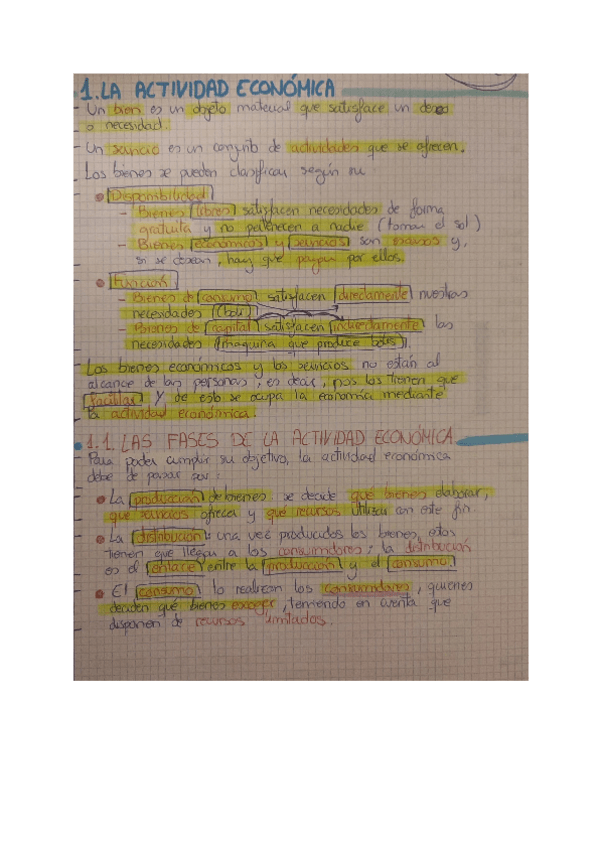 1. LA ACTIVIDAD ECONÓMICA
Un bien es un objeto material que satisface un deseo
o necesidad.
Un servicio es un conjunto de actividades que se ofrecen.
Los bienes se pueden clasificar según su:
Disponibilidad
- Bienes libres satisfacen necesidades de forma
gratuita y no pertenecen a nadie (tomar el sol)
- Bienes económicos y servicios son escasos y,
si se desean, hay que pagar por ellos.
Función
- Bienes de consumo satisfacen directamente nuestras
necesidades (boli)
- Bienes de capital satisfacen indirectamente las
necesidades (máquina que produce bolis).
Los bienes económicos y los servicios no están al
alcance de las personas, es decir, nos los tienen que
facilitar y de esto se ocupa la economía mediante
la actividad económica.
1.1. LAS FASES DE LA ACTIVIDAD ECONÓMICA
Para poder cumplir su objetivo, la actividad económica
debe de pasar por:
La producción de bienes se decide qué bienes elaborar,
qué servicios ofrecer y qué recursos utilizar con este fin.
La distribución: una vez producidos los bienes, estos
tienen que llegar a los consumidores; la distribución
es el enlace entre la producción y el consumo.
El consumo lo realizan los consumidores, quienes
deciden qué bienes escoger, teniendo en cuenta que
disponen de recursos limitados.